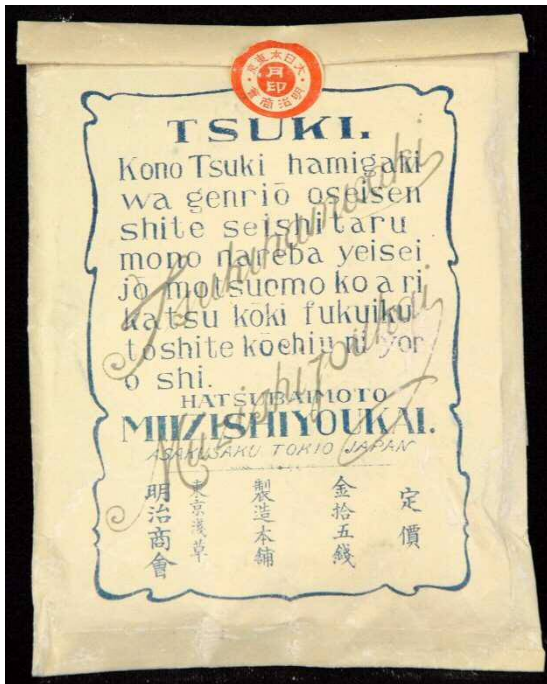 大日本東京
月印
明治商會
TSUKI.
Kono Tsuki hamigaki
wa genriō oseisen
shite seishitaru
mono nareba yeisei
jō motsuomo ko a ri
katsu kōki fukuiku
toshite kōchiu ni yor
o shi.
HATSUBAIMOTO
MIIZISHIYOUKAI.
ASAKUSAKU TOKIO JAPAN
Tsukihamigaki
Miizishiyoukai
定價
金拾五錢
製造本舗
東京淺草
明治商會